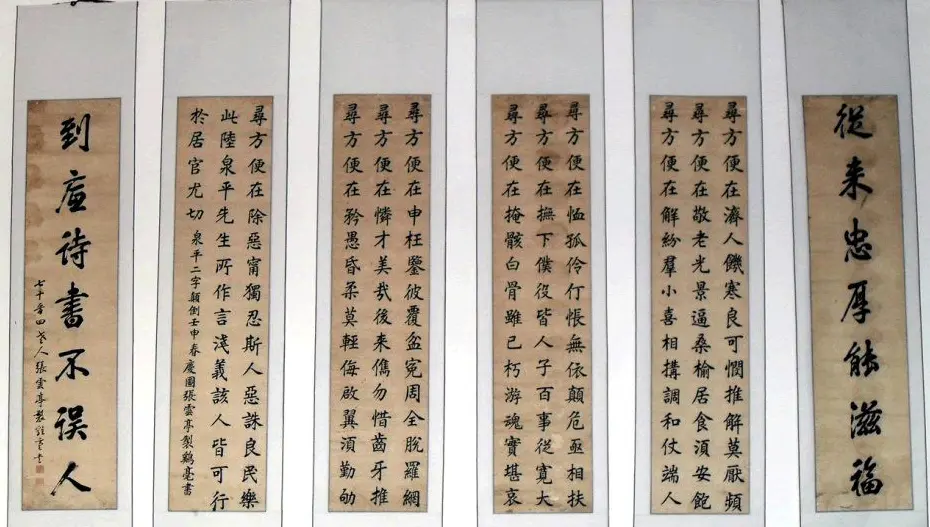 從来忠厚能滋福
尋方便在濟人饑寒良可憫推解莫厭頻
尋方便在敬老光景逼桑榆居食須安飽
尋方便在解紛羣小喜相搆調和仗端人
尋方便在恤孤伶仃悵無依顛危亟相扶
尋方便在撫下僕役皆人子百事從寬大
尋方便在掩骸白骨雖已朽游魂實堪哀
尋方便在申枉鑒彼覆盆冤周全脫羅網
尋方便在憐才美哉後来儁勿惜齒牙推
尋方便在矜愚昏柔莫輕侮啟翼須勤劬
尋方便在除惡甯獨忍斯人惡誅良民樂
此陸泉平先生所作言淺義該人皆可行
於居官尤切 泉平二字顛倒壬申春慶圃張雲亭製鷄毫書
到處詩書不誤人
七十有四老人張雲亭製